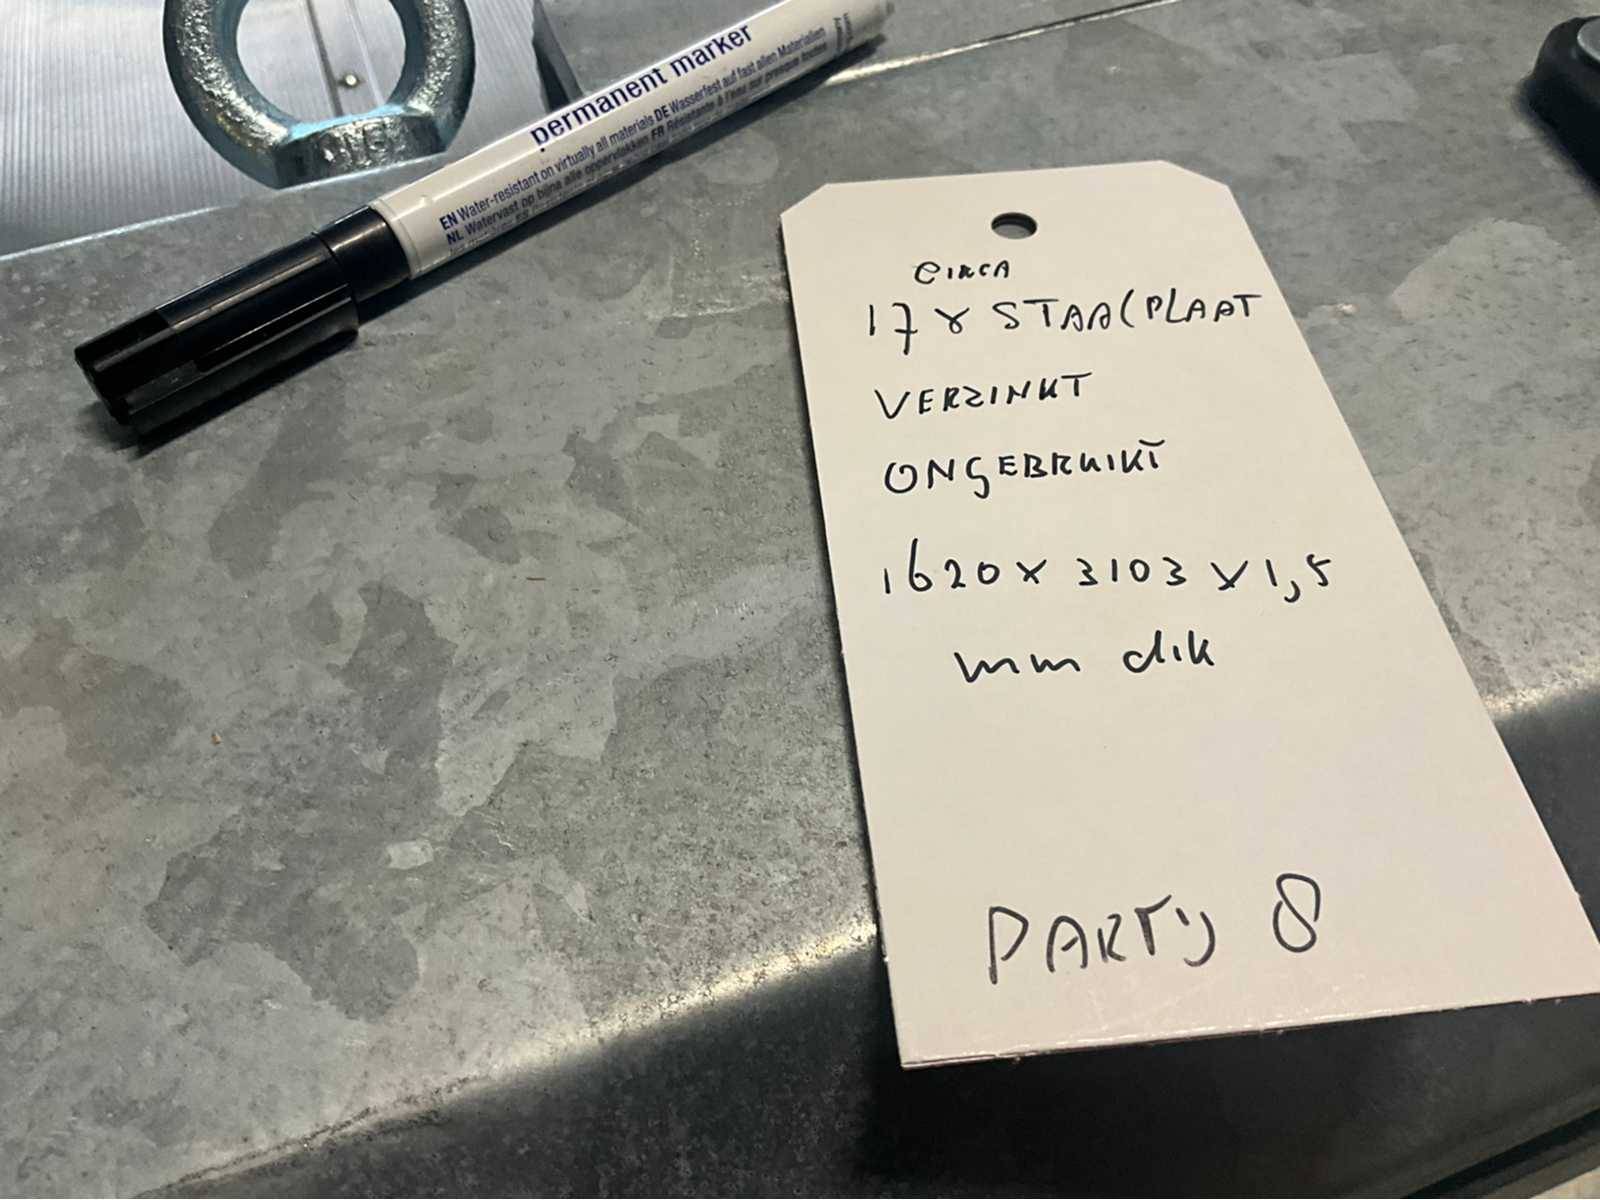 permanent marker
EN Water-resistant on virtually all materials DE Wasserfest auf fast allen Materialien
NL Watervast op bijna alle oppervlakken FR Résistante à l'eau sur presque toutes
CIRCA
17 x STAALPLAAT
VERZINKT
ONGEBRUIKT
1620 x 3103 x 1,5
mm dik
PARTIJ 8